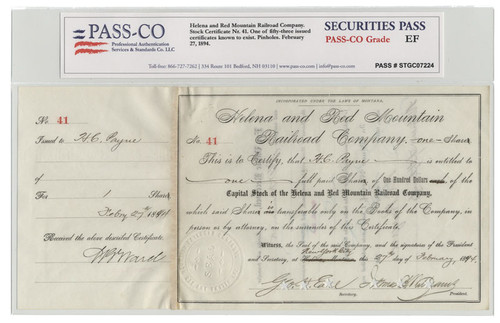 PASS-CO
Professional Authentication
Services & Standards Co. LLC
Helena and Red Mountain Railroad Company.
Stock Certificate Nr. 41. One of fifty-three issued
certificates known to exist. Pinholes. February
27, 1894.
SECURITIES PASS
PASS-CO Grade EF
Toll-free: 866-727-7262 | 334 Route 101 Bedford, NH 03110 | www.pass-co.com | info@pass-co.com
PASS # STGC07224
No. 41
Issued to H.C. Payne
of
For 1 Share
Feby 27th 1894
Received the above described Certificate.
INCORPORATED UNDER THE LAWS OF MONTANA.
Helena and Red Mountain
No. 41 Railroad Company, -one- Share
This is to Certify, that H.C. Payne is entitled to
one full paid Share of One Hundred Dollars of the
Capital Stock of the Helena and Red Mountain Railroad Company,
which said Share is transferable only on the Books of the Company, in
person or by attorney, on the surrender of this Certificate.
Witness, the Seal of the said Company, and the signatures of the President
New York City
and Secretary, at this 27th day of February 1894.
Secretary. President.